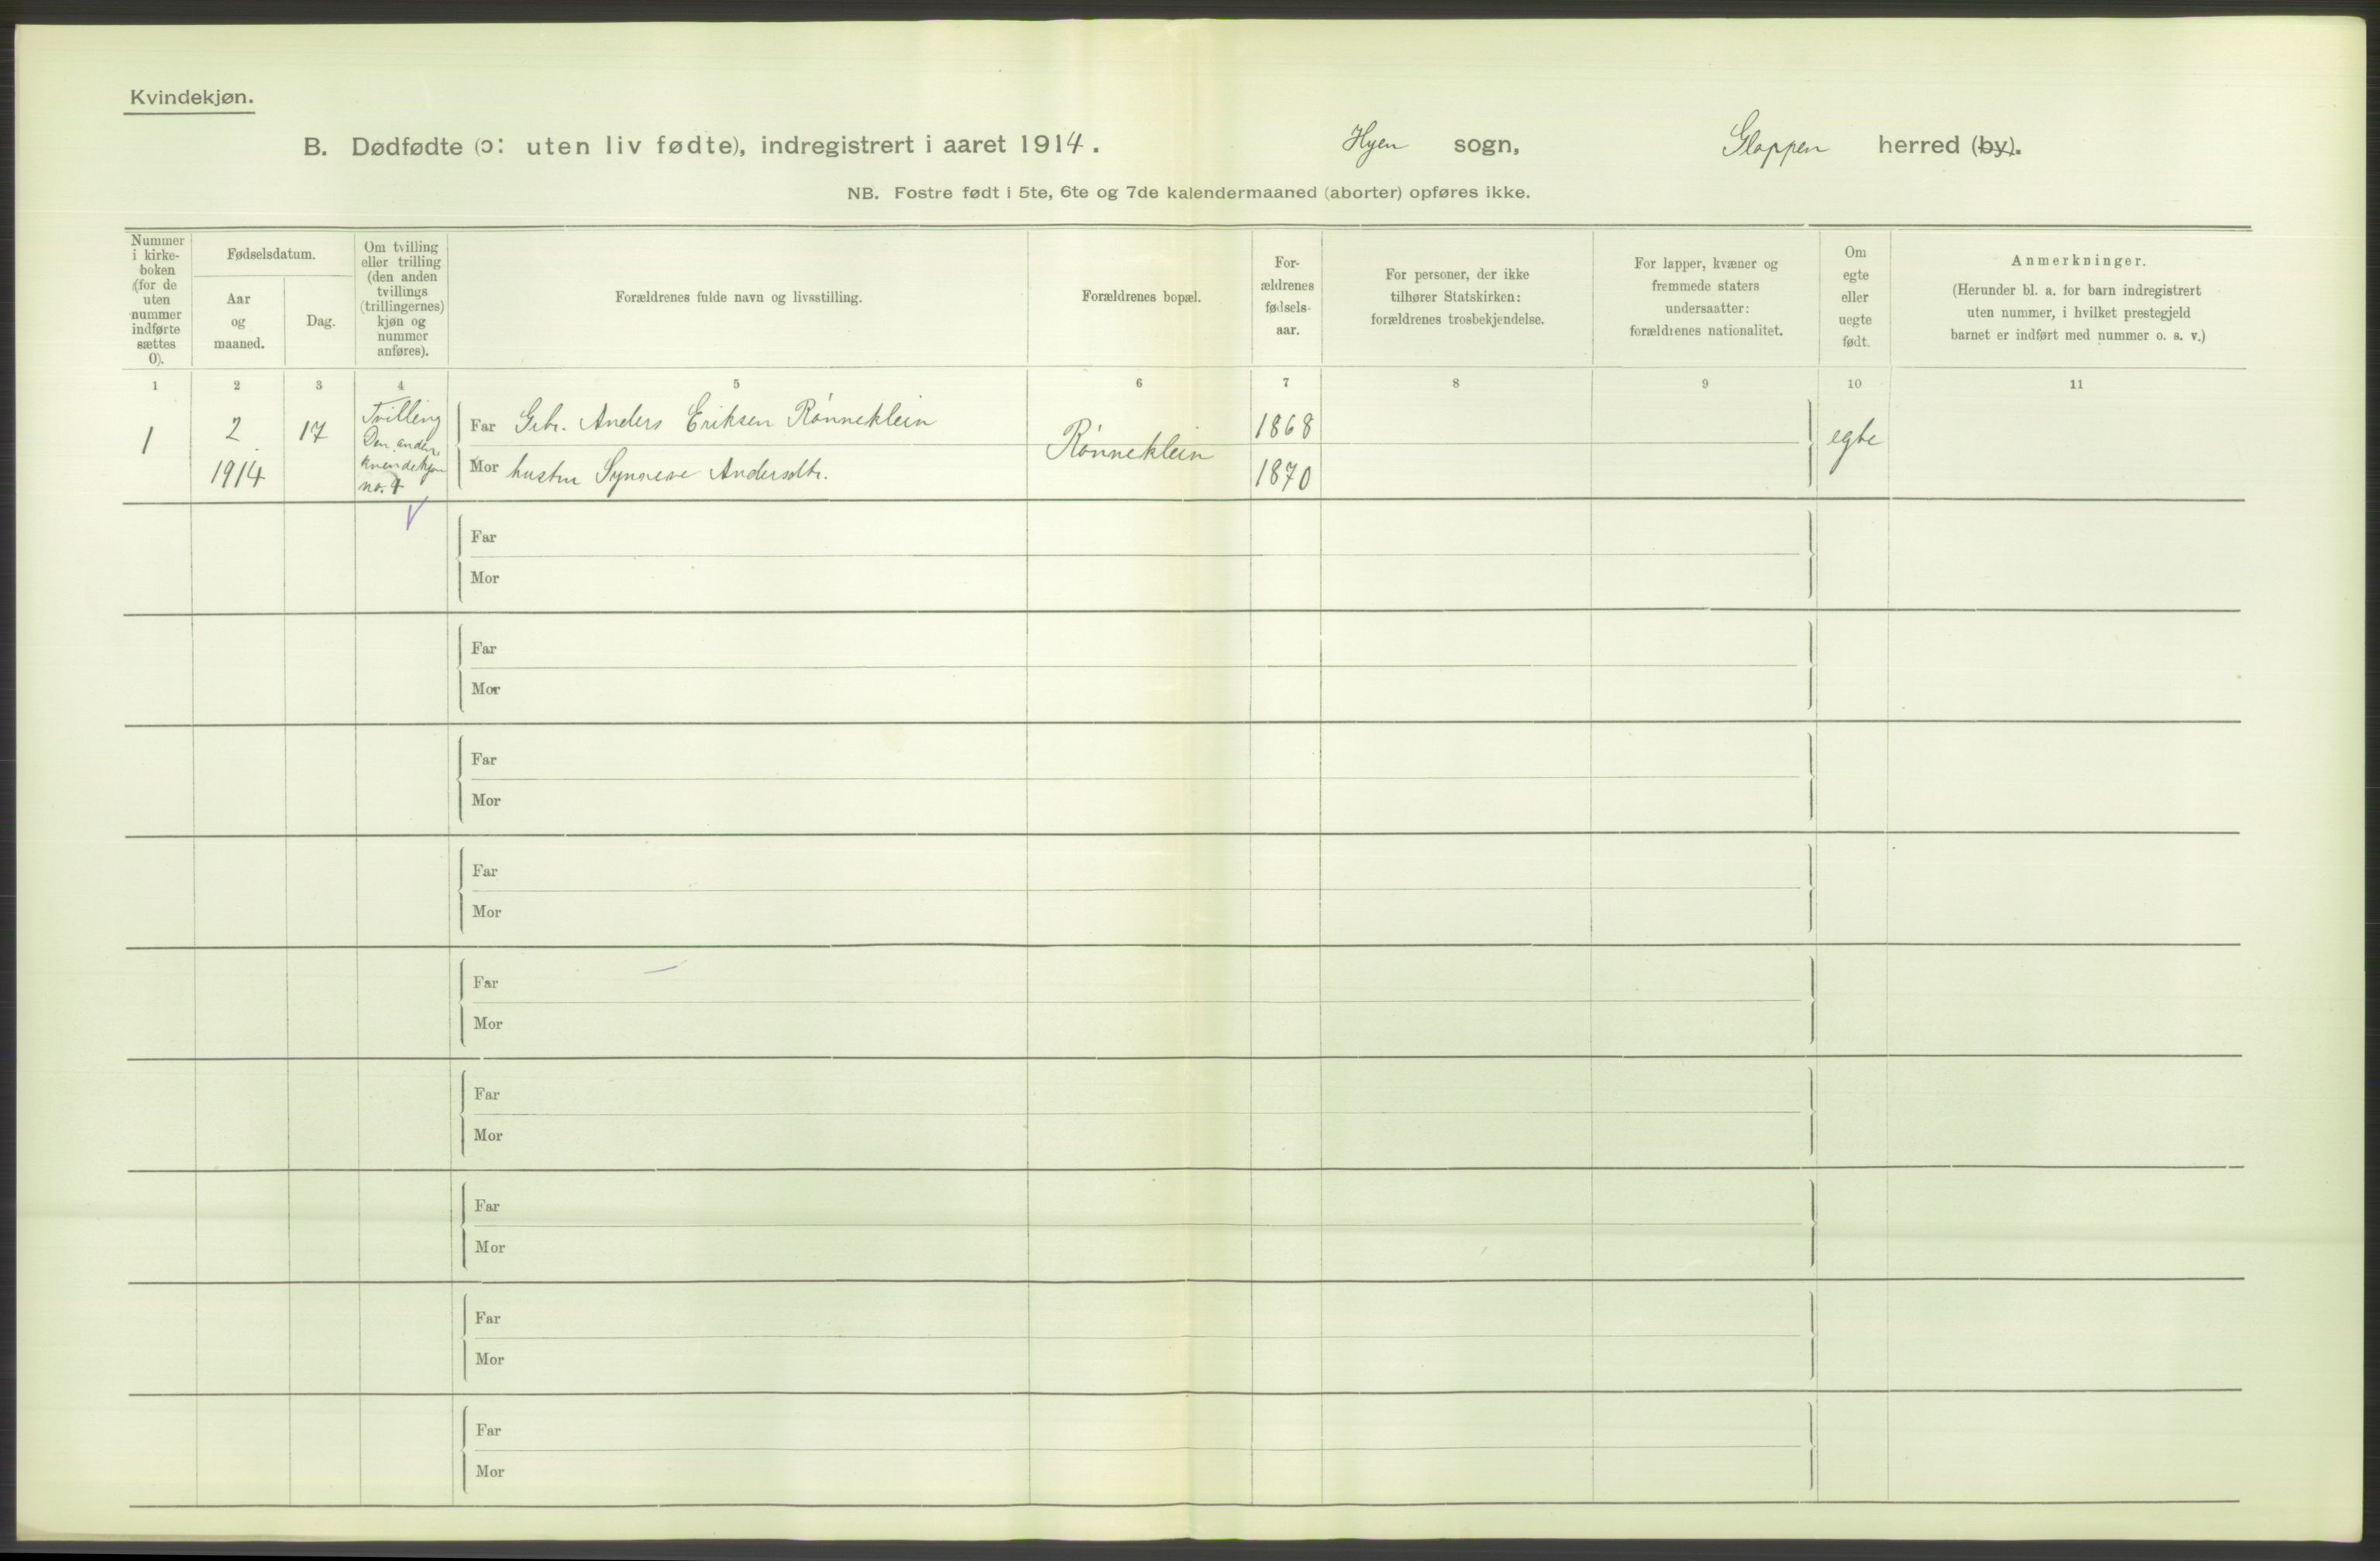 Kvindekjøn.
B. Dødfødte (ɔ: uten liv fødte), indregistrert i aaret 1914. Hyen sogn, Gloppen herred (by).
NB. Fostre født i 5te, 6te og 7de kalendermaaned (aborter) opføres ikke.
Nummer
i kirke-
boken
(for de
uten
nummer
indførte
sættes
0).
Fødselsdatum.
Aar
og
maaned.
Dag.
Om tvilling
eller trilling
(den anden
tvillings
(trillingernes)
kjøn og
nummer
anføres).
Forældrenes fulde navn og livsstilling.
Forældrenes bopæl.
For-
ældrenes
fødsels-
aar.
For personer, der ikke
tilhører Statskirken:
forældrenes trosbekjendelse.
For lapper, kvæner og
fremmede staters
undersaatter:
forældrenes nationalitet.
Om
egte
eller
uegte
født.
Anmerkninger.
(Herunder bl. a. for barn indregistrert
uten nummer, i hvilket prestegjeld
barnet er indført med nummer o. s. v.)
1 2 3 4 5 6 7 8 9 10 11
1
2
1914
17
Tvilling
Den anden
kvindekjøn
no.
Far Grbr. Anders Eriksen Rønneklein
Mor hustru Synneve Andersdtr.
Rønneklein
1868
1870
egte
Far
Mor
Far
Mor
Far
Mor
Far
Mor
Far
Mor
Far
Mor
Far
Mor
Far
Mor
Far
Mor